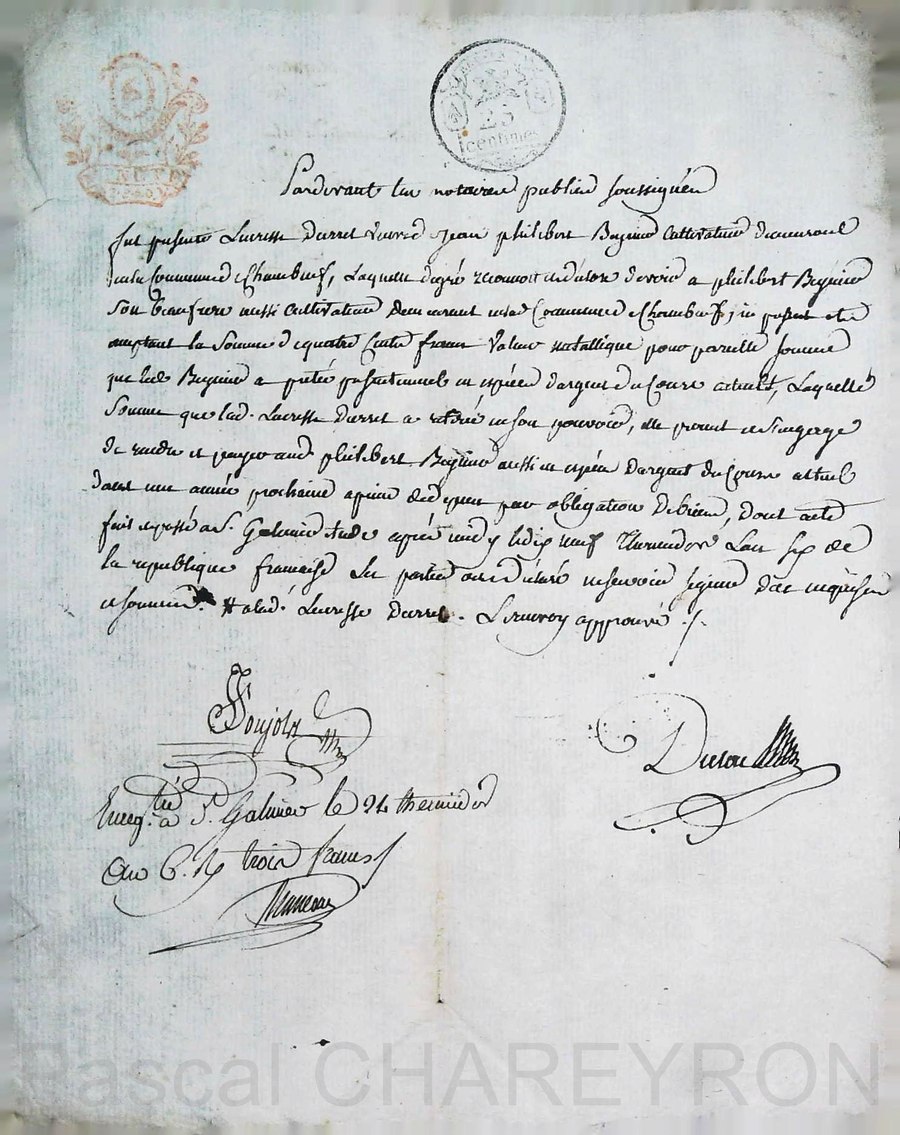 25
centimes
Pardevant les notaires publics soussignés
fut présente Lucresse Darret veuve Jean philibert cultivateur demeurant
commune Chambeuf, Laquelle degré reconnoit devoir a philibert
Son beaufrere aussi Cultivateur Demeurant Commune Chambeuf, ici présent
acceptant la Somme de quatre Cents francs Valeur métallique pour pareille somme
que led. a prêtée présentement en espèces d'argent du Cours actuel, Laquelle
Somme que lad. Lucresse Darret a retiré en son pouvoir, elle promet et S'engage
de rendre et payer aud. philibert aussi en espèces D'argent du Cours actuel
Dans une année prochaine a peine de par obligation De biens, Dont acte
fait et passé a St. Galmier Etude après midy le dix neuf Thermidor L'an Six de
la république française Les parties ont déclaré ne savoir signer De ce enquises
et sommées. # a lad. Lucresse Darret. Le renvoy approuvé ./.
Enreg.tré à St. Galmier le 24 thermidor
an 6. trois francs
Pascal CHAREYRON